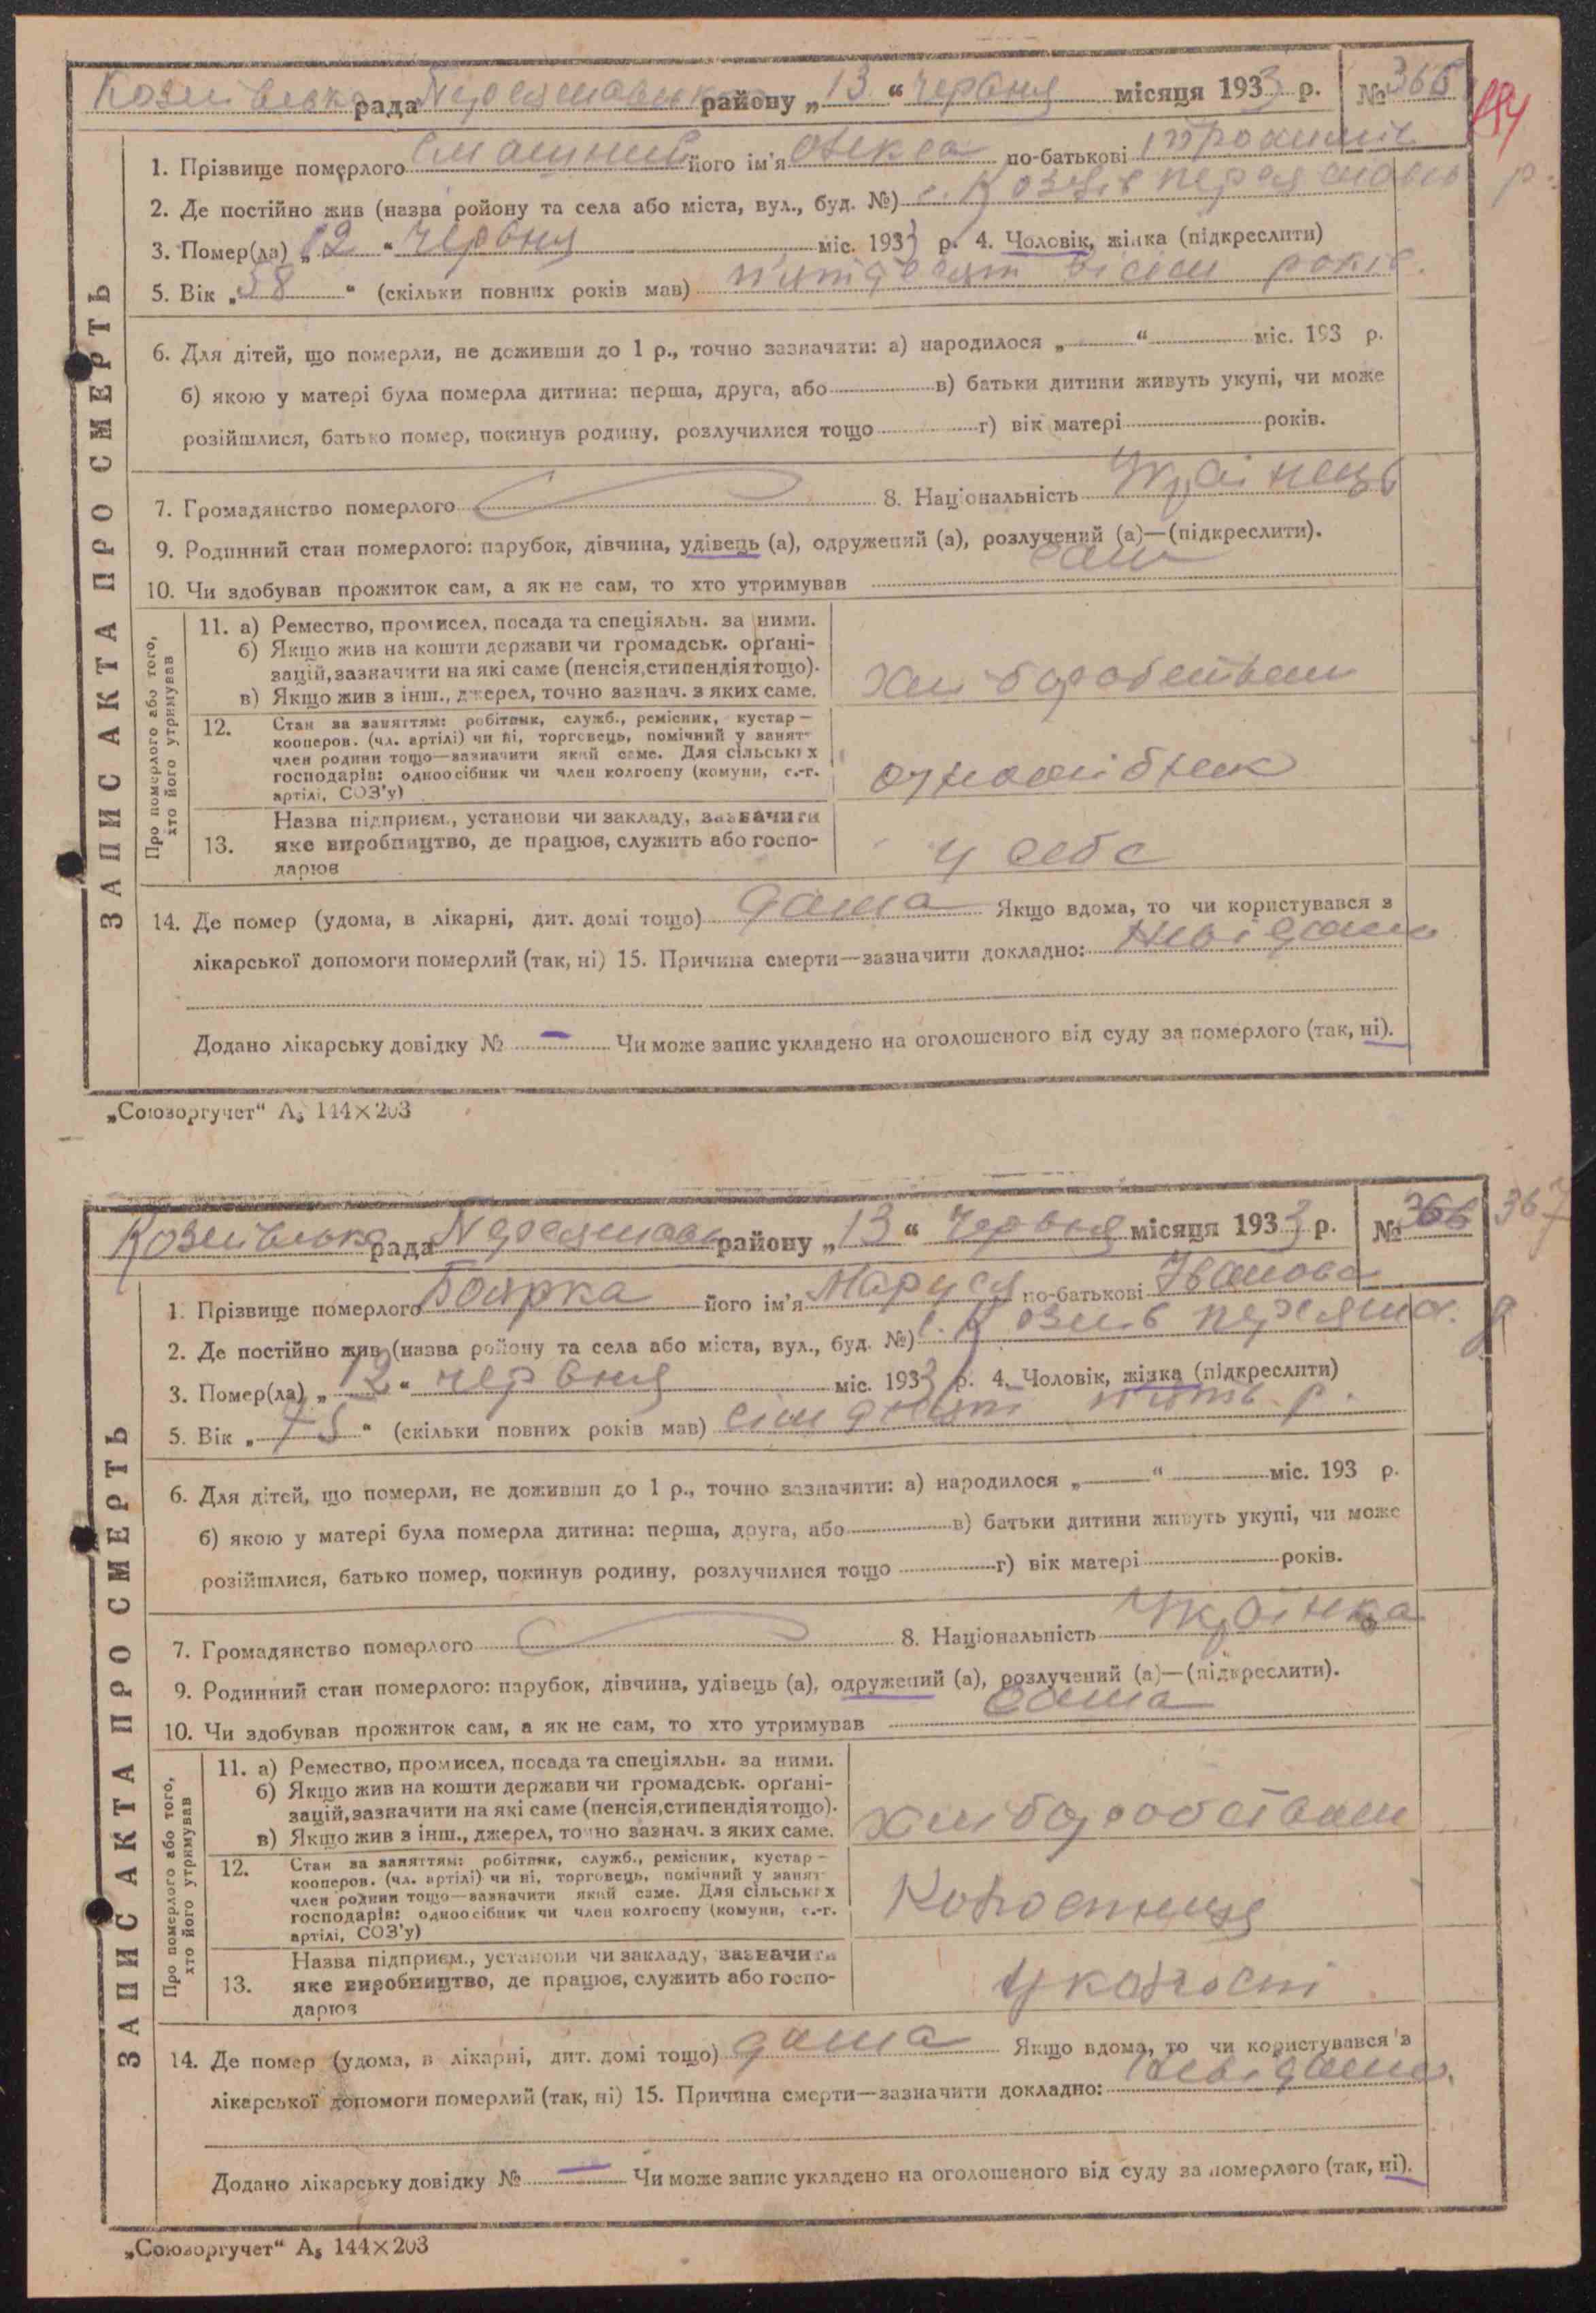 рада району „13“ червня місяця 1933 р. № 366
1. Прізвище померлого його ім'я Олекса по-батькові
2. Де постійно жив (назва ройону та села або міста, вул., буд. №) с.
3. Помер(ла) „12“ червня міс. 1933 р. 4. Чоловік, жінка (підкреслити)
5. Вік „58“ (скільки повних років мав) п'ятдесят вісім років.
6. Для дітей, що померли, не доживши до 1 р., точно зазначити: а) народилося „ “ міс. 193 р.
б) якою у матері була померла дитина: перша, друга, або в) батьки дитини живуть укупі, чи може
розійшлися, батько помер, покинув родину, розлучилися тощо г) вік матері років.
7. Громадянство померлого 8. Національність Українець
9. Родинний стан померлого: парубок, дівчина, удівець (а), одружений (а), розлучений (а)—(підкреслити).
10. Чи здобував прожиток сам, а як не сам, то хто утримував сам
ЗАПИС АКТА ПРО СМЕРТЬ
Про померлого або того,
хто його утримував
11. а) Ремество, промисел, посада та спеціяльн. за ними.
б) Якщо жив на кошти держави чи громадськ. орґані-
зацій, зазначити на які саме (пенсія, стипендія тощо).
в) Якщо жив з інш., джерел, точно зазнач. з яких саме.
хліборобством
12. Стан за заняттям: робітник, служб., ремісник, кустар —
кооперов. (чл. артілі) чи ні, торговець, помічний у занят-
член родини тощо—зазначити який саме. Для сільських
господарів: одноосібник чи член колгоспу (комуни, с.-г.
артілі, СОЗ'у)
одноосібник
Назва підприєм., установи чи закладу, зазначити
13. яке виробництво, де працює, служить або госпо-
дарює
у себе
14. Де помер (удома, в лікарні, дит. домі тощо) дома Якщо вдома, то чи користувався з
лікарської допомоги померлий (так, ні) 15. Причина смерти—зазначити докладно: невідома
Додано лікарську довідку № — Чи може запис укладено на оголошеного від суду за померлого (так, ні).
„Союзоргучет“ А₅ 144×203
рада району „13“ червня місяця 1933 р. № 366 367
1. Прізвище померлого Боярка його ім'я Маруся по-батькові Іванова
2. Де постійно жив (назва ройону та села або міста, вул., буд. №) с.
3. Помер(ла) „12“ червня міс. 1933 р. 4. Чоловік, жінка (підкреслити)
5. Вік „75“ (скільки повних років мав) п'ять р.
6. Для дітей, що померли, не доживши до 1 р., точно зазначити: а) народилося „ “ міс. 193 р.
б) якою у матері була померла дитина: перша, друга, або в) батьки дитини живуть укупі, чи може
розійшлися, батько помер, покинув родину, розлучилися тощо г) вік матері років.
7. Громадянство померлого 8. Національність Українка
9. Родинний стан померлого: парубок, дівчина, удівець (а), одружений (а), розлучений (а)—(підкреслити).
10. Чи здобував прожиток сам, а як не сам, то хто утримував сама
ЗАПИС АКТА ПРО СМЕРТЬ
Про померлого або того,
хто його утримував
11. а) Ремество, промисел, посада та спеціяльн. за ними.
б) Якщо жив на кошти держави чи громадськ. орґані-
зацій, зазначити на які саме (пенсія, стипендія тощо).
в) Якщо жив з інш., джерел, точно зазнач. з яких саме.
хліборобством
12. Стан за заняттям: робітник, служб., ремісник, кустар —
кооперов. (чл. артілі) чи ні, торговець, помічний у занят-
член родини тощо—зазначити який саме. Для сільських
господарів: одноосібник чи член колгоспу (комуни, с.-г.
артілі, СОЗ'у)
Назва підприєм., установи чи закладу, зазначити
13. яке виробництво, де працює, служить або госпо-
дарює
у колгоспі
14. Де помер (удома, в лікарні, дит. домі тощо) дома Якщо вдома, то чи користувався з
лікарської допомоги померлий (так, ні) 15. Причина смерти—зазначити докладно: невідома
Додано лікарську довідку № — Чи може запис укладено на оголошеного від суду за померлого (так, ні).
„Союзоргучет“ А₅ 144×203